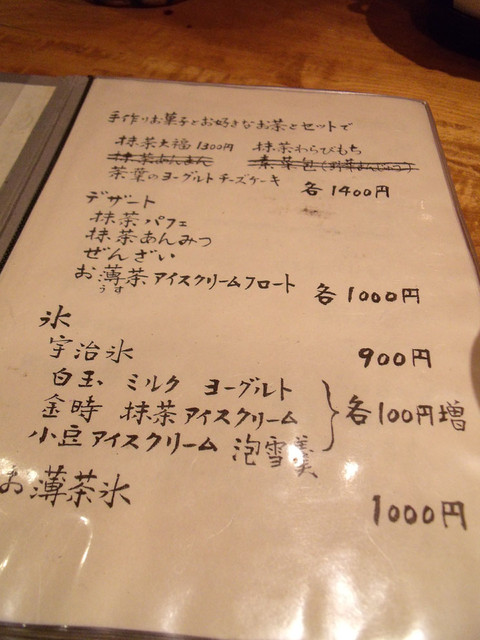 手作りお菓子とお好きなお茶とセットで
抹茶大福1300円 抹茶わらびもち
抹茶あんまん
茶葉のヨーグルトチーズケーキ 各1400円
デザート
抹茶パフェ
抹茶あんみつ
ぜんざい
お薄茶アイスクリームフロート 各1000円
うす
氷
宇治氷 900円
白玉 ミルク ヨーグルト
金時 抹茶アイスクリーム 各100円増
小豆アイスクリーム 泡雪羹
お薄茶氷 1000円